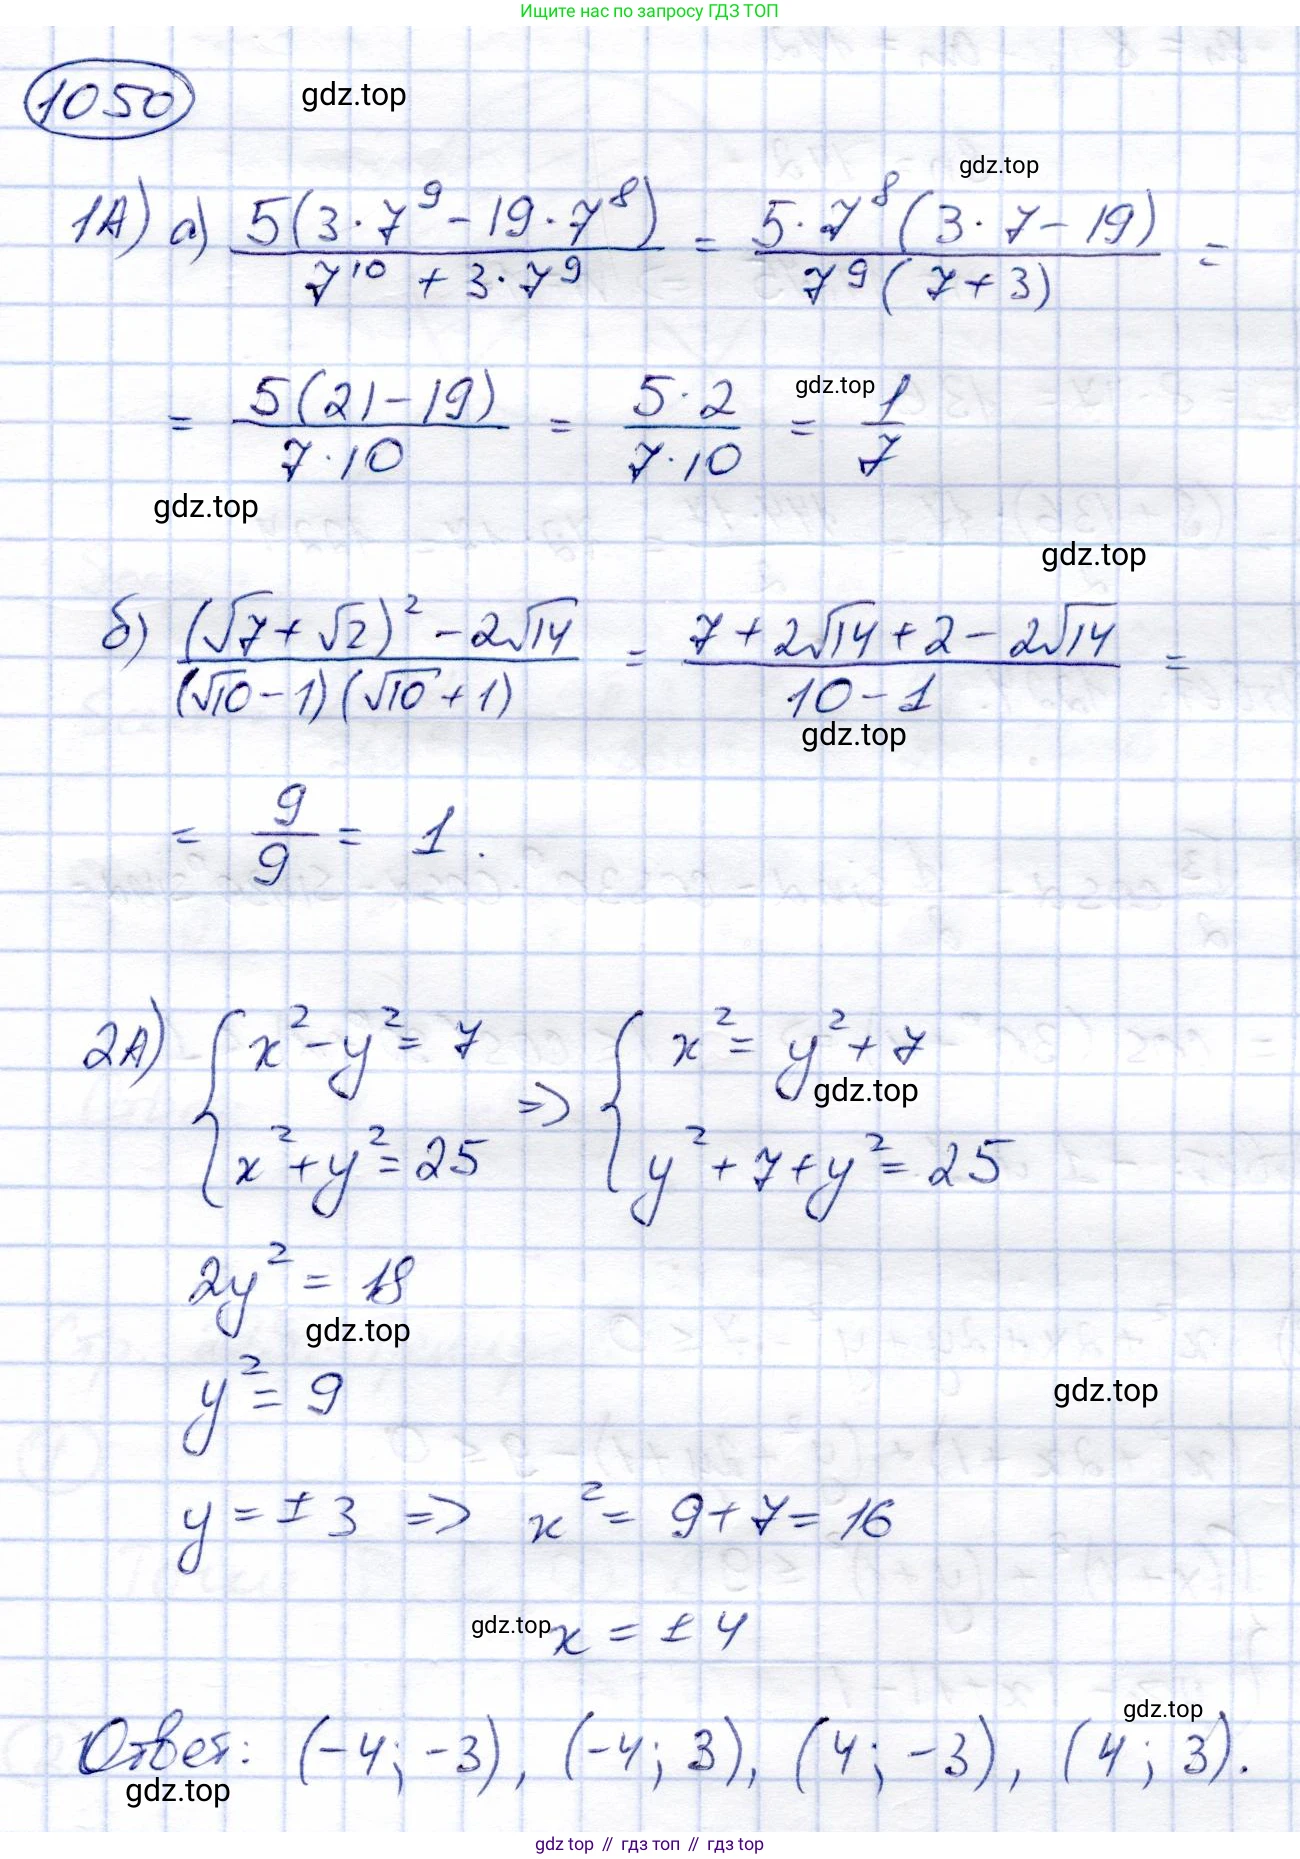 Ищите нас по запросу ГДЗ ТОП
1050
gdz.top
gdz.top
1А) а) 5(3·7⁹ - 19·7⁸) / (7¹⁰ + 3·7⁹) = 5·7⁸(3·7 - 19) / (7⁹(7+3)) =
= 5(21-19) / (7·10) = 5·2 / (7·10) = 1/7
gdz.top
gdz.top
gdz.top
б) ((√7+√2)² - 2√14) / ((√10-1)(√10+1)) = (7+2√14+2-2√14) / (10-1) =
gdz.top
= 9/9 = 1.
2А) { x² - y² = 7 => { x² = y² + 7
gdz.top
x² + y² = 25 y² + 7 + y² = 25
2y² = 18
gdz.top
y² = 9
gdz.top
y = ±3 => x² = 9+7 = 16
gdz.top
x = ±4
gdz.top
Ответ: (-4; -3), (-4; 3), (4; -3), (4; 3).
gdz.top
gdz top // гдз топ // гдз top